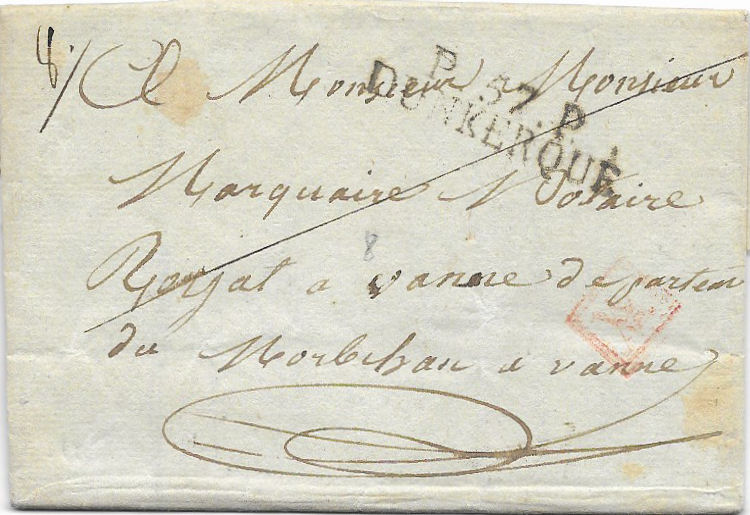 8/
A Monsieur Monsieur
P. 57. P.
DUNKERQUE
Marquaire Notaire
Royal a vanne departem
8
du Morbihan a vanne